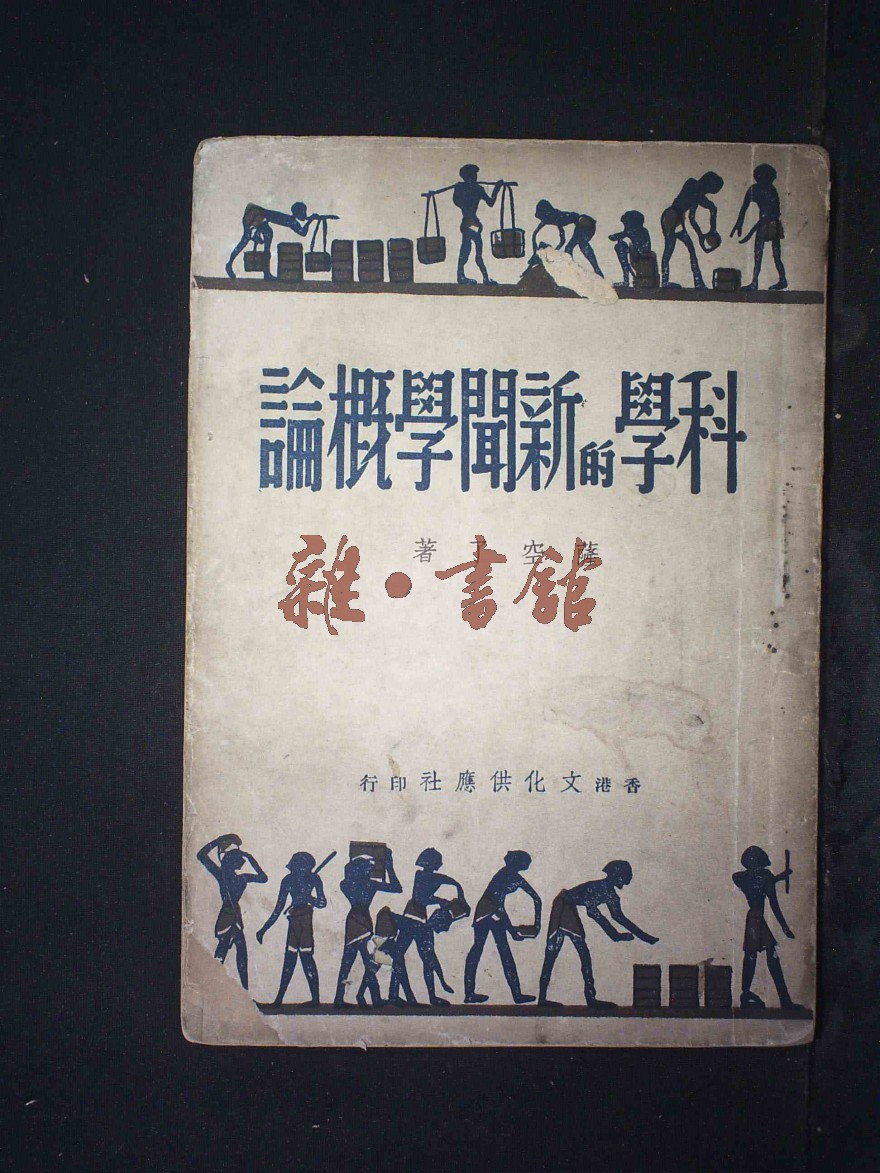 科學的新聞學概論
薩空了著
雜·書館
香港文化供應社印行